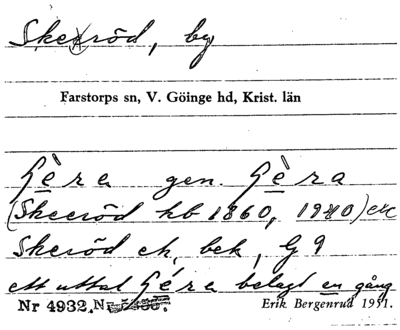 Skeröd, by
Farstorps sn, V. Göinge hd, Krist. län
gen.
(Skeeröd hb 1860, 1940) etc
Skeröd ek, bek, G9
ett uttal belagt en gång
Nr 4932. Erik Bergenrud 1951.